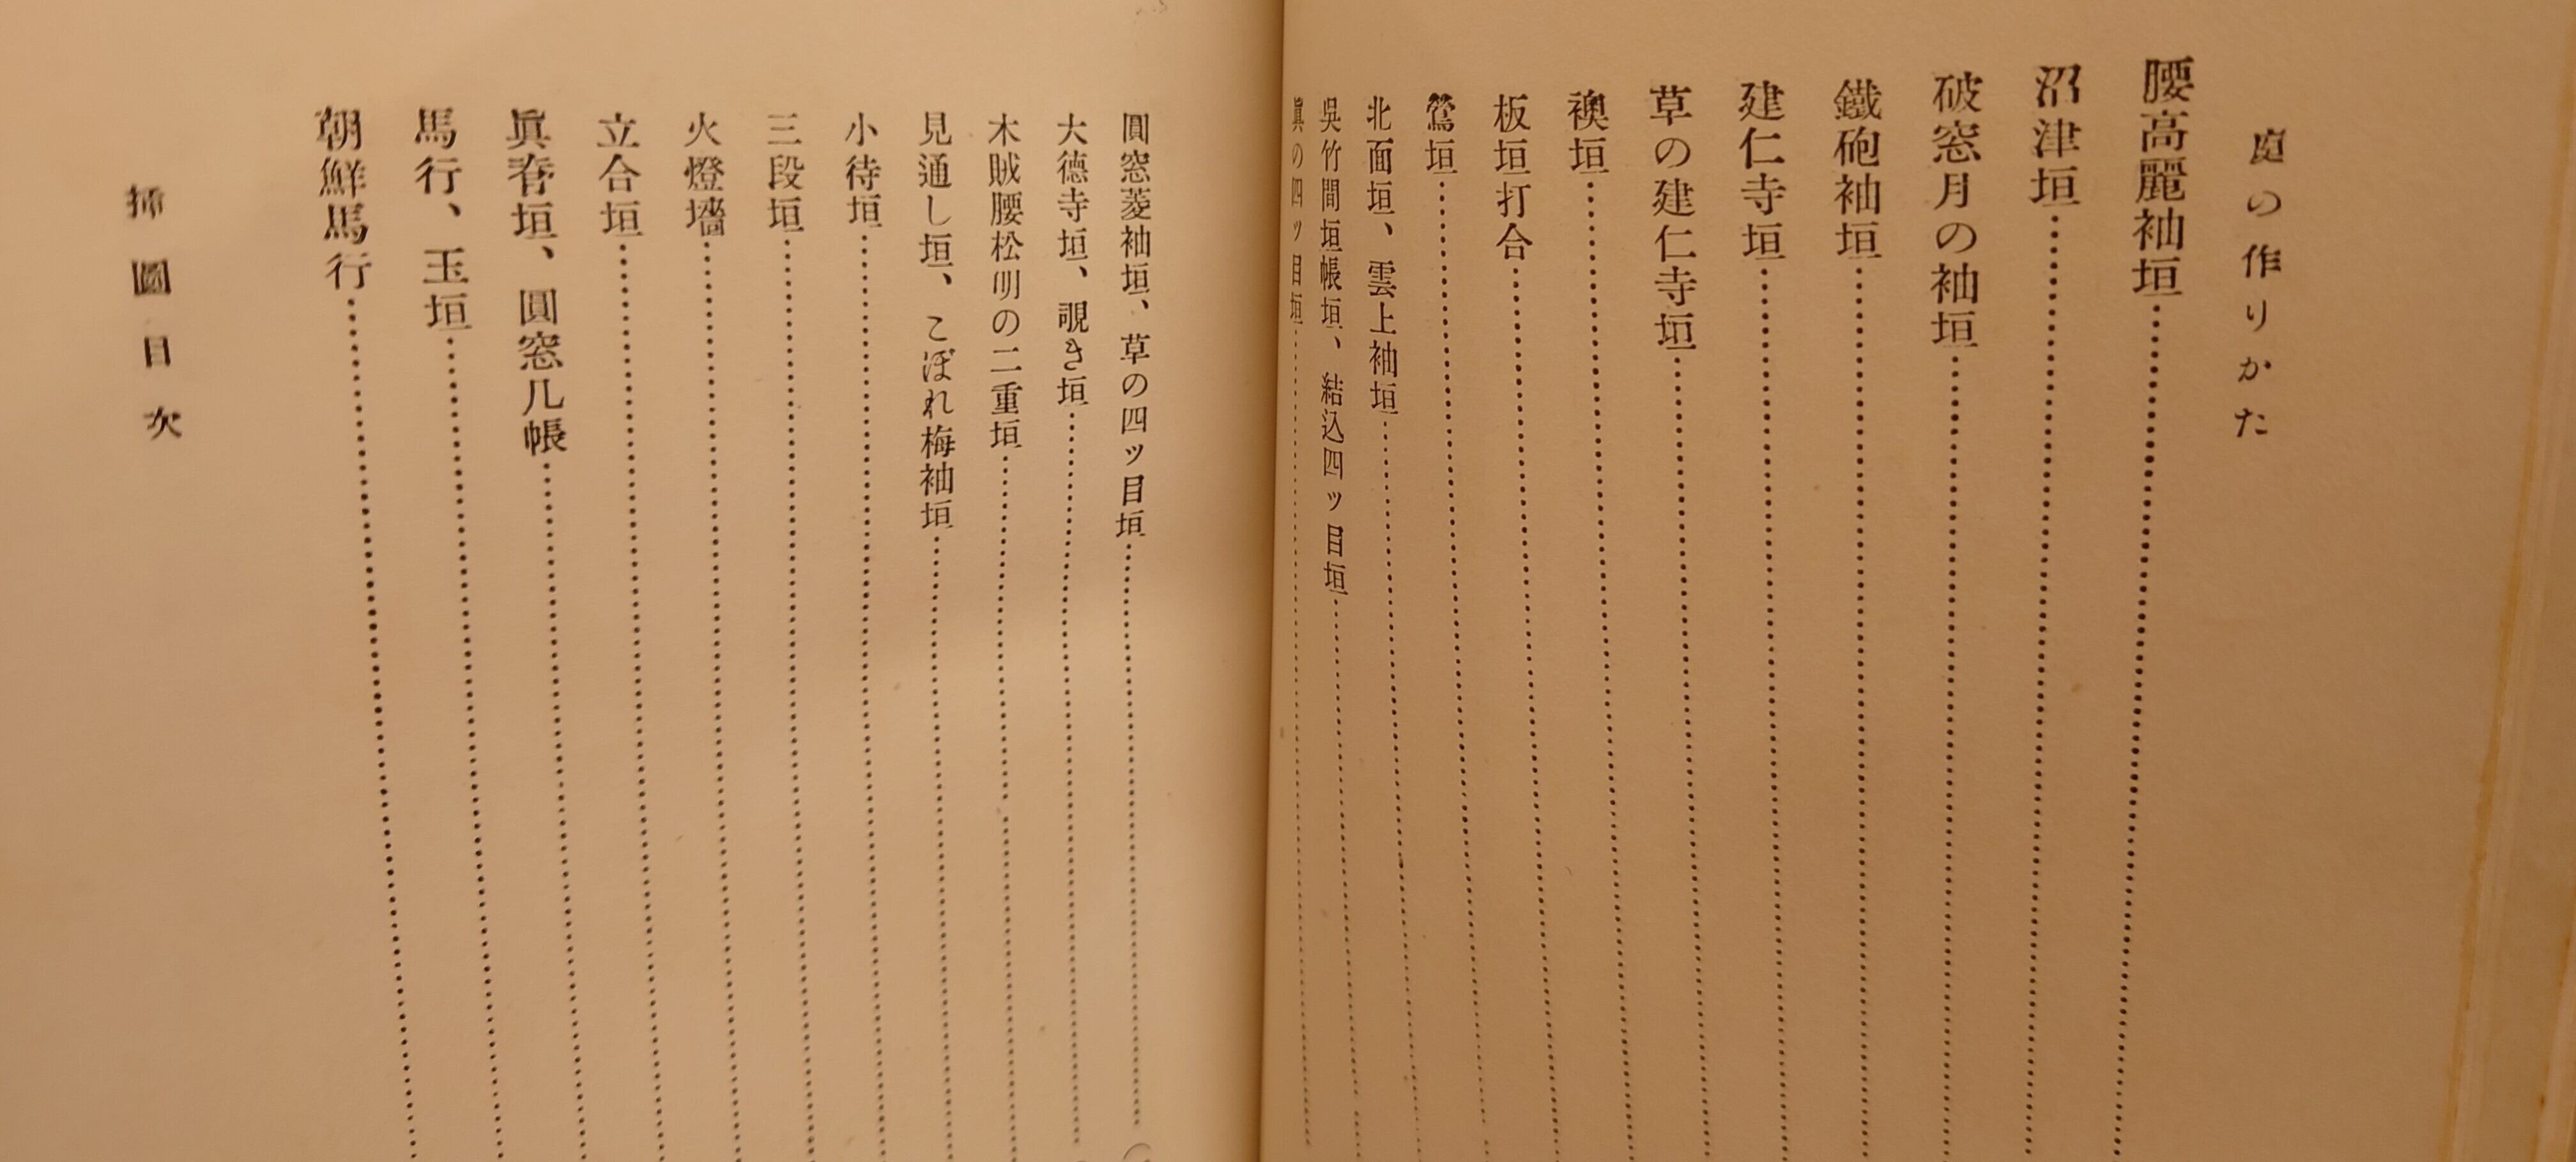 庭の作りかた
腰高麗袖垣
沼津垣
破窓月の袖垣
鐵砲袖垣
建仁寺垣
草の建仁寺垣
襖垣
板垣打合
鶯垣
北面垣、雲上袖垣
吳竹間垣帳垣、結込四ッ目垣
眞の四ッ目垣
圓窓菱袖垣、草の四ッ目垣
大德寺垣、覗き垣
木賊腰松明の二重垣
見通し垣、こぼれ梅袖垣
小待垣
三段垣
火燈墻
立合垣
眞脊垣、圓窓几帳
馬行、玉垣
朝鮮馬行
揷圖目次